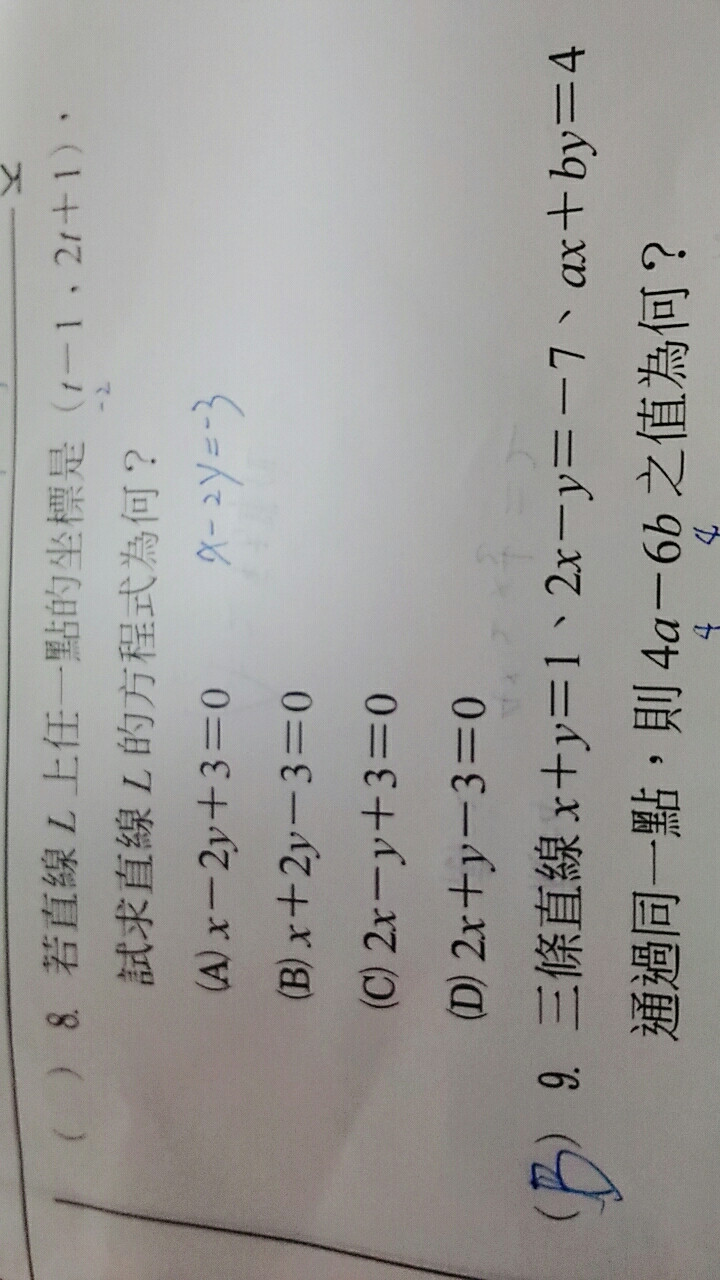 ( ) 8. 若直線 L 上任一點的坐標是 (t－1、2t＋1)、
-2
試求直線 L 的方程式為何？
(A) x－2y＋3＝0
x-2y=-3
(B) x＋2y－3＝0
(C) 2x－y＋3＝0
(D) 2x＋y－3＝0
(B) 9. 三條直線 x＋y＝1、2x－y＝－7、ax＋by＝4
通過同一點，則 4a－6b 之值為何？